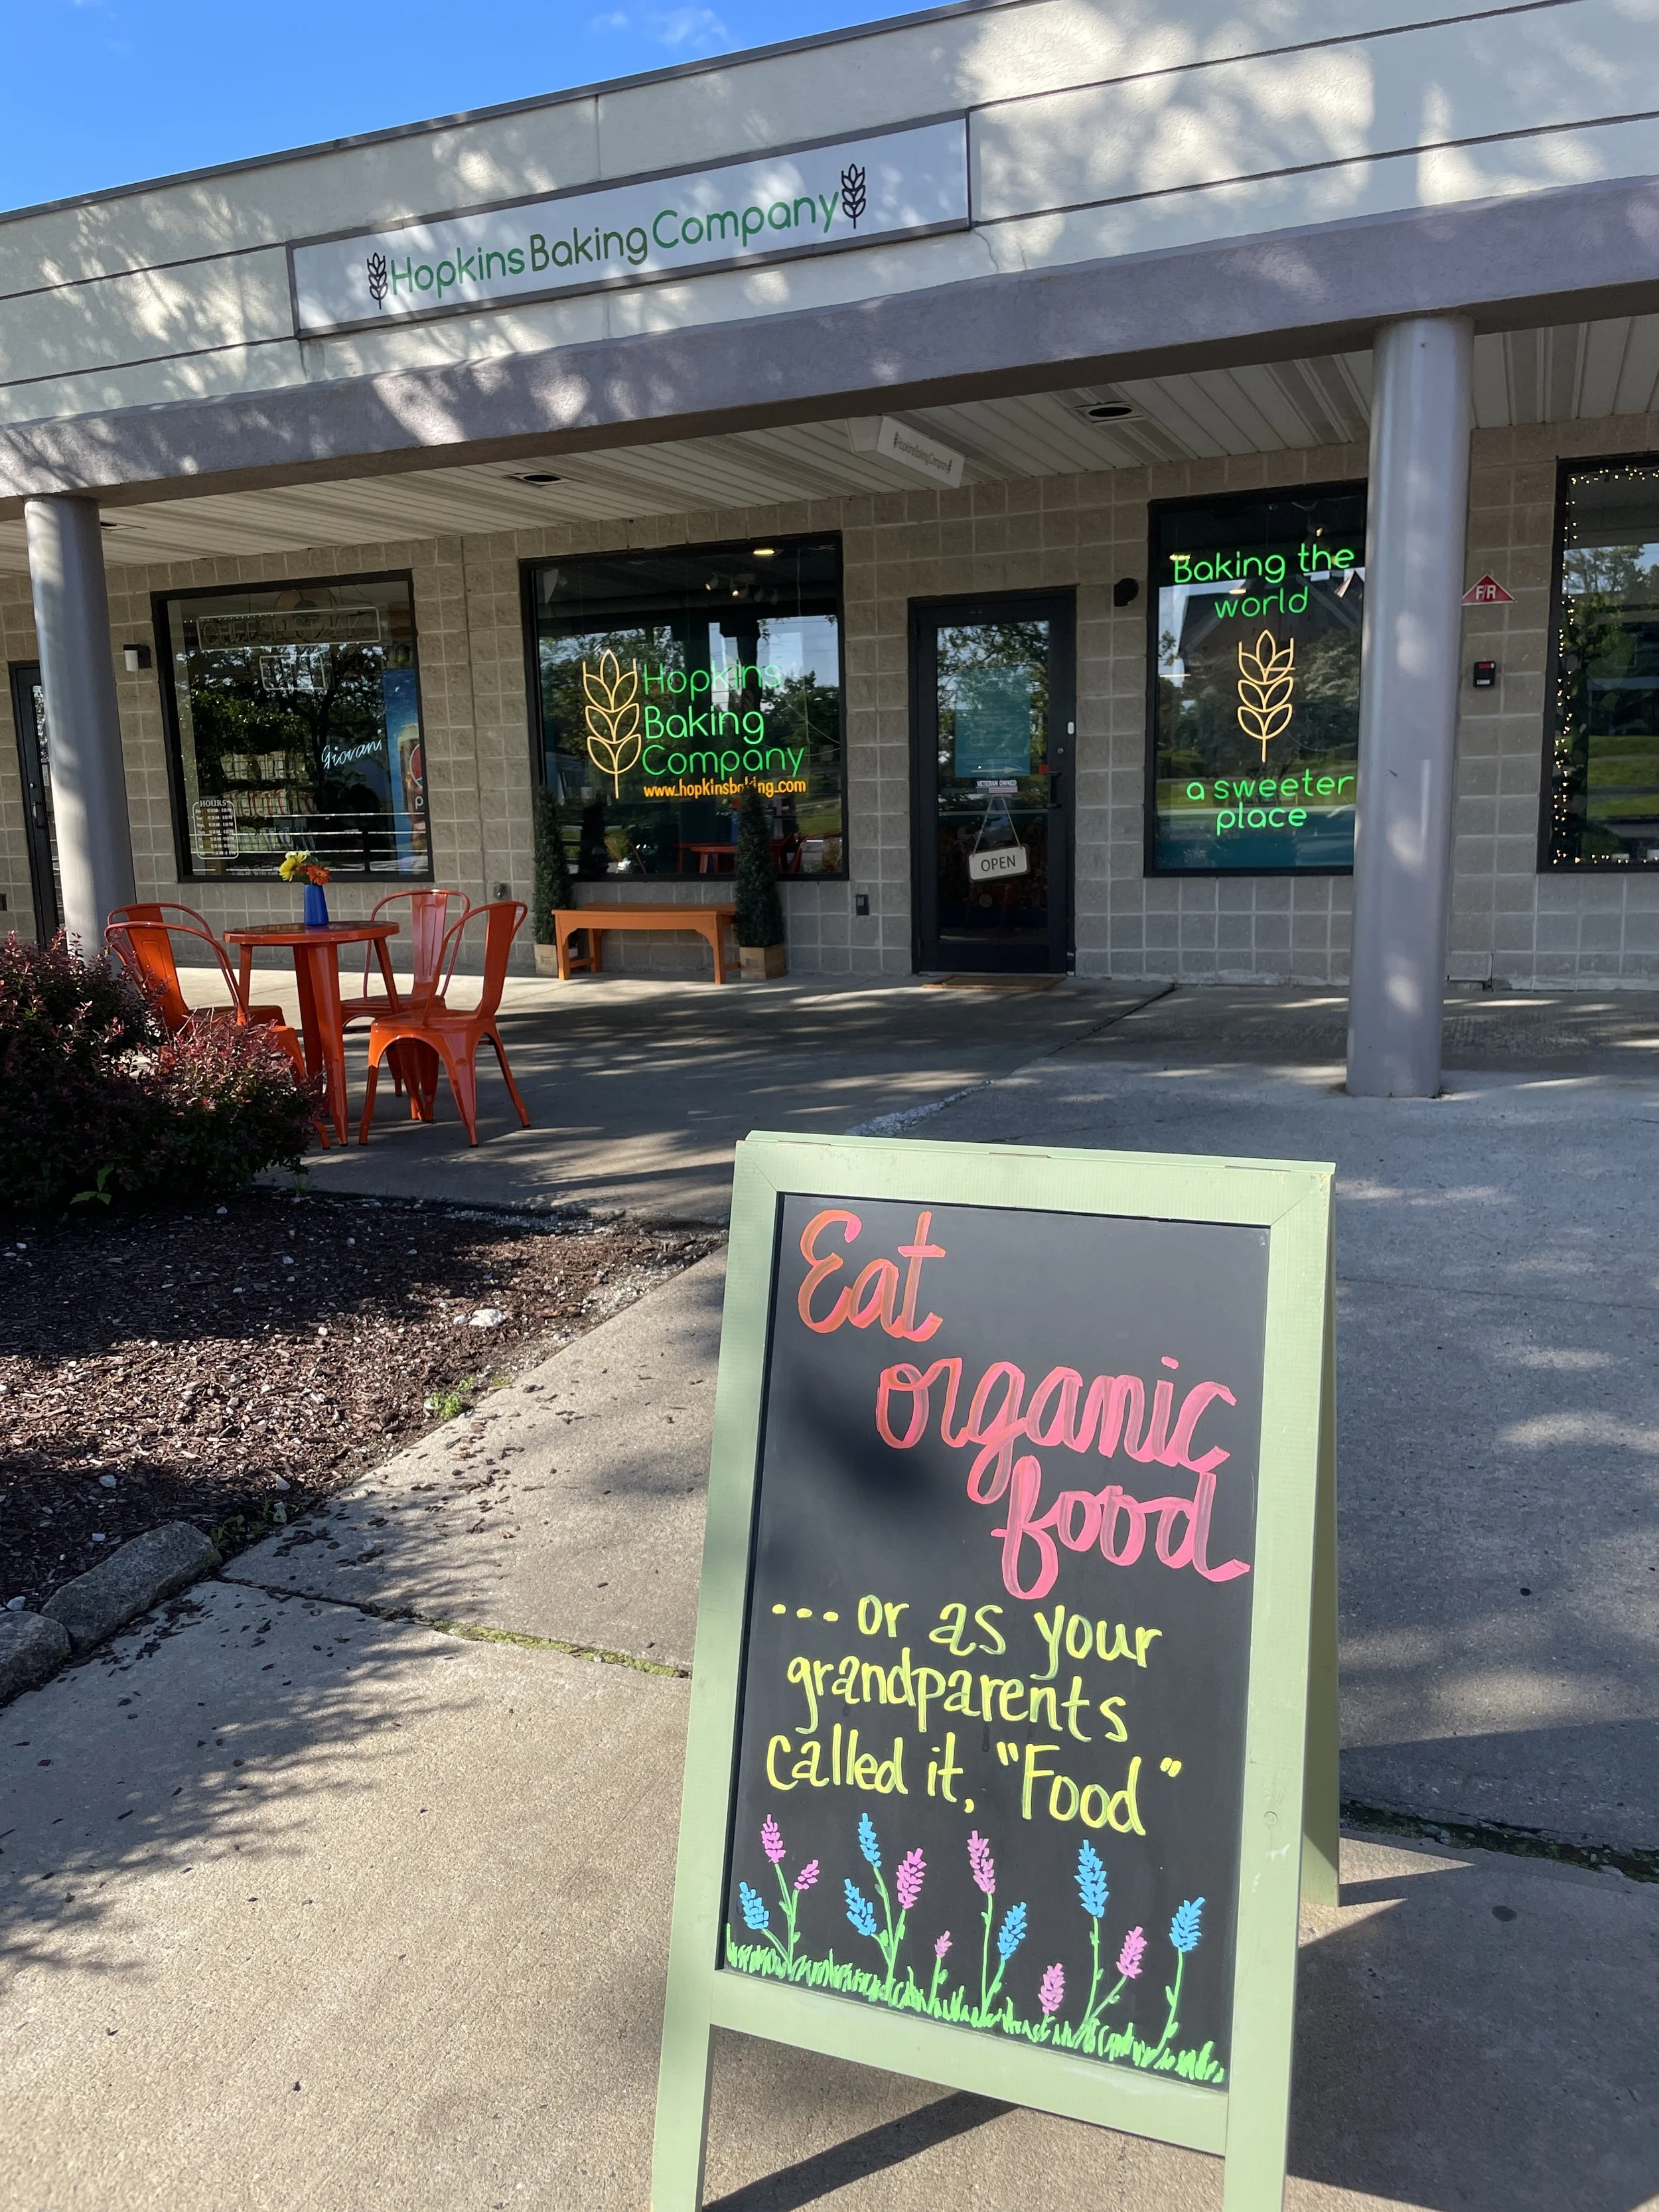 Hopkins Baking Company
Baking the
world
a sweeter
place
F/R
Hopkins
Baking
Company
www.hopkinsbaking.com
Giovani
HOURS
VETERAN OWNED
OPEN
Eat
organic
food
... or as your
grandparents
called it, "Food"